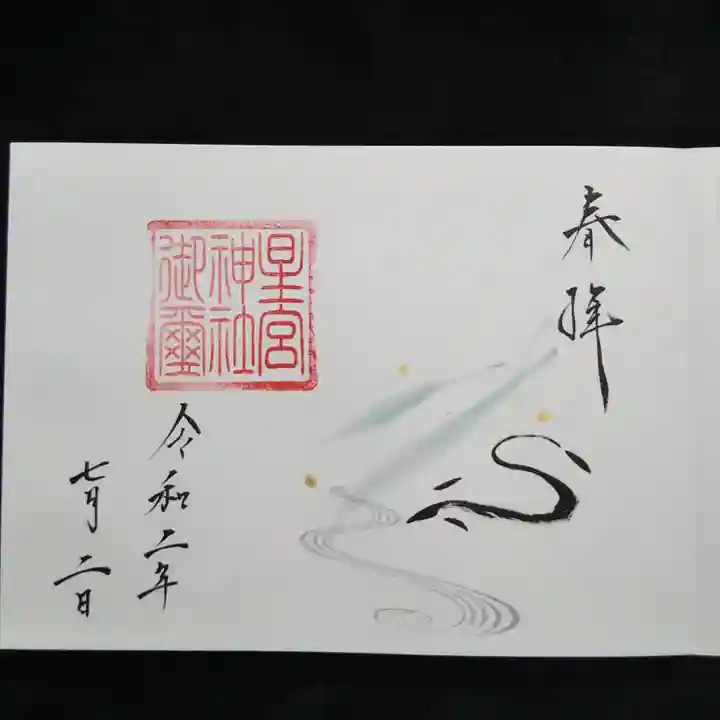 奉拝
星宮
神社
御璽
令和二年
七月二日